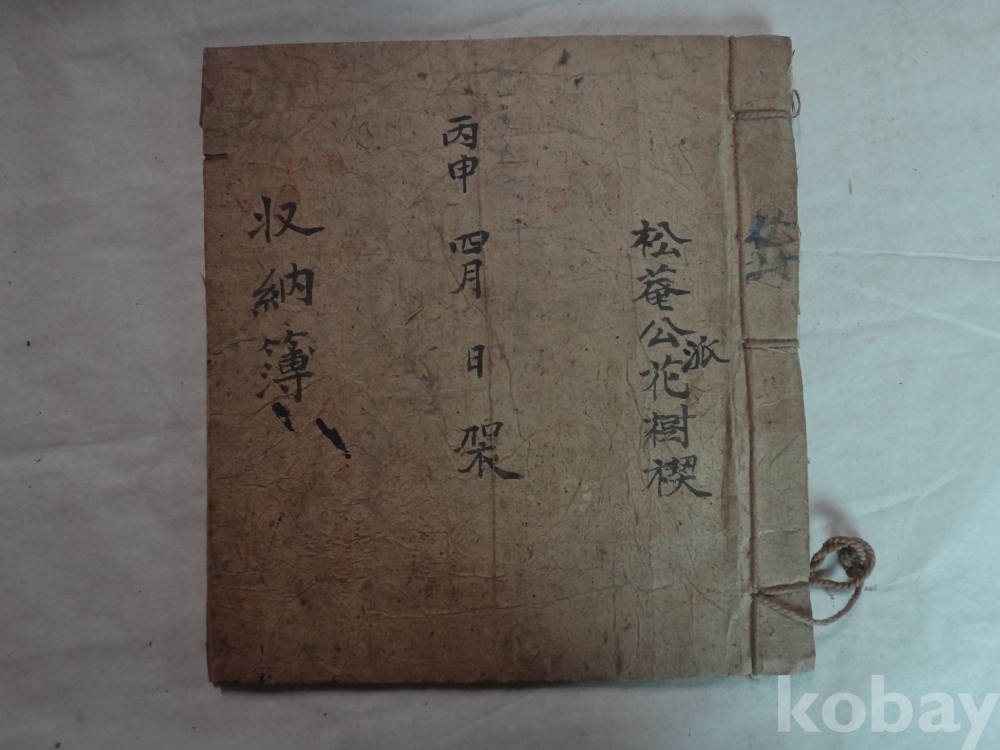 松菴公派花樹禊
丙申 四月 日 架
収納簿
kobay